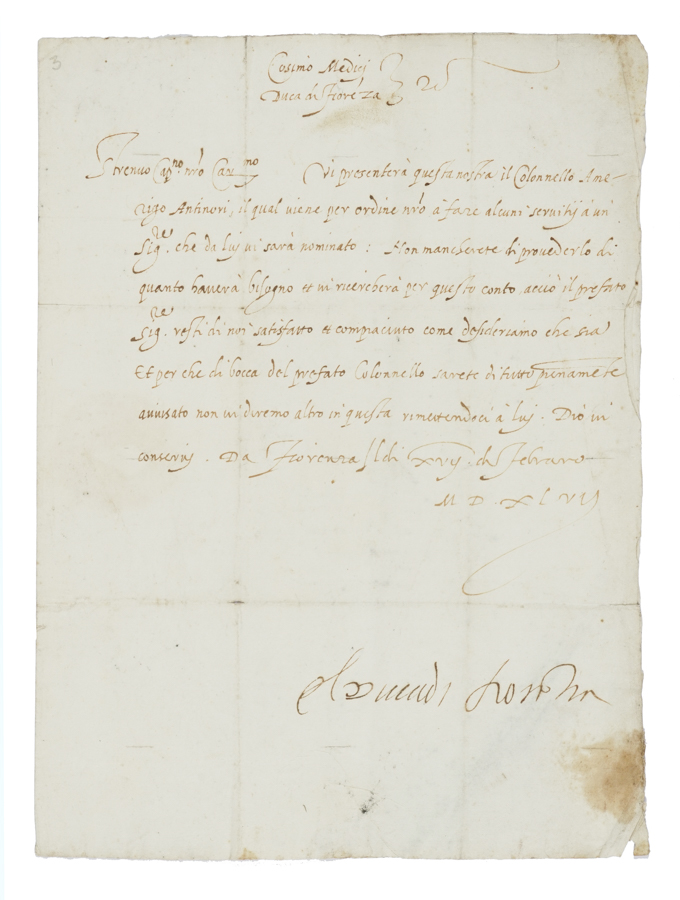 3
Cosimo Medici
Duca di Fiore'za
Strenuo Cap.no n'ro Car.mo Vi presenterà questa nostra il Colonnello Ame-
rigo Antinori, il qual viene per ordine n'ro à fare alcuni seruitij à un
Sig.re che da luj ui sarà nominato: Non mancherete di prouederlo di
quanto hauerà bisogno et ui ricercherà per questo conto, acciò il prefato
Sig.re resti di noi satisfatto et compiaciuto come desideriamo che sia
Et per che di bocca del prefato Colonnello sarete di tutto pienam.te
auuisato non ui diremo altro in questa rimettendoci à luj. Dio ui
conseruj. Da Fiorenza li di xvij di Febraro
M D XLVIJ
el Duca di Fiorenza